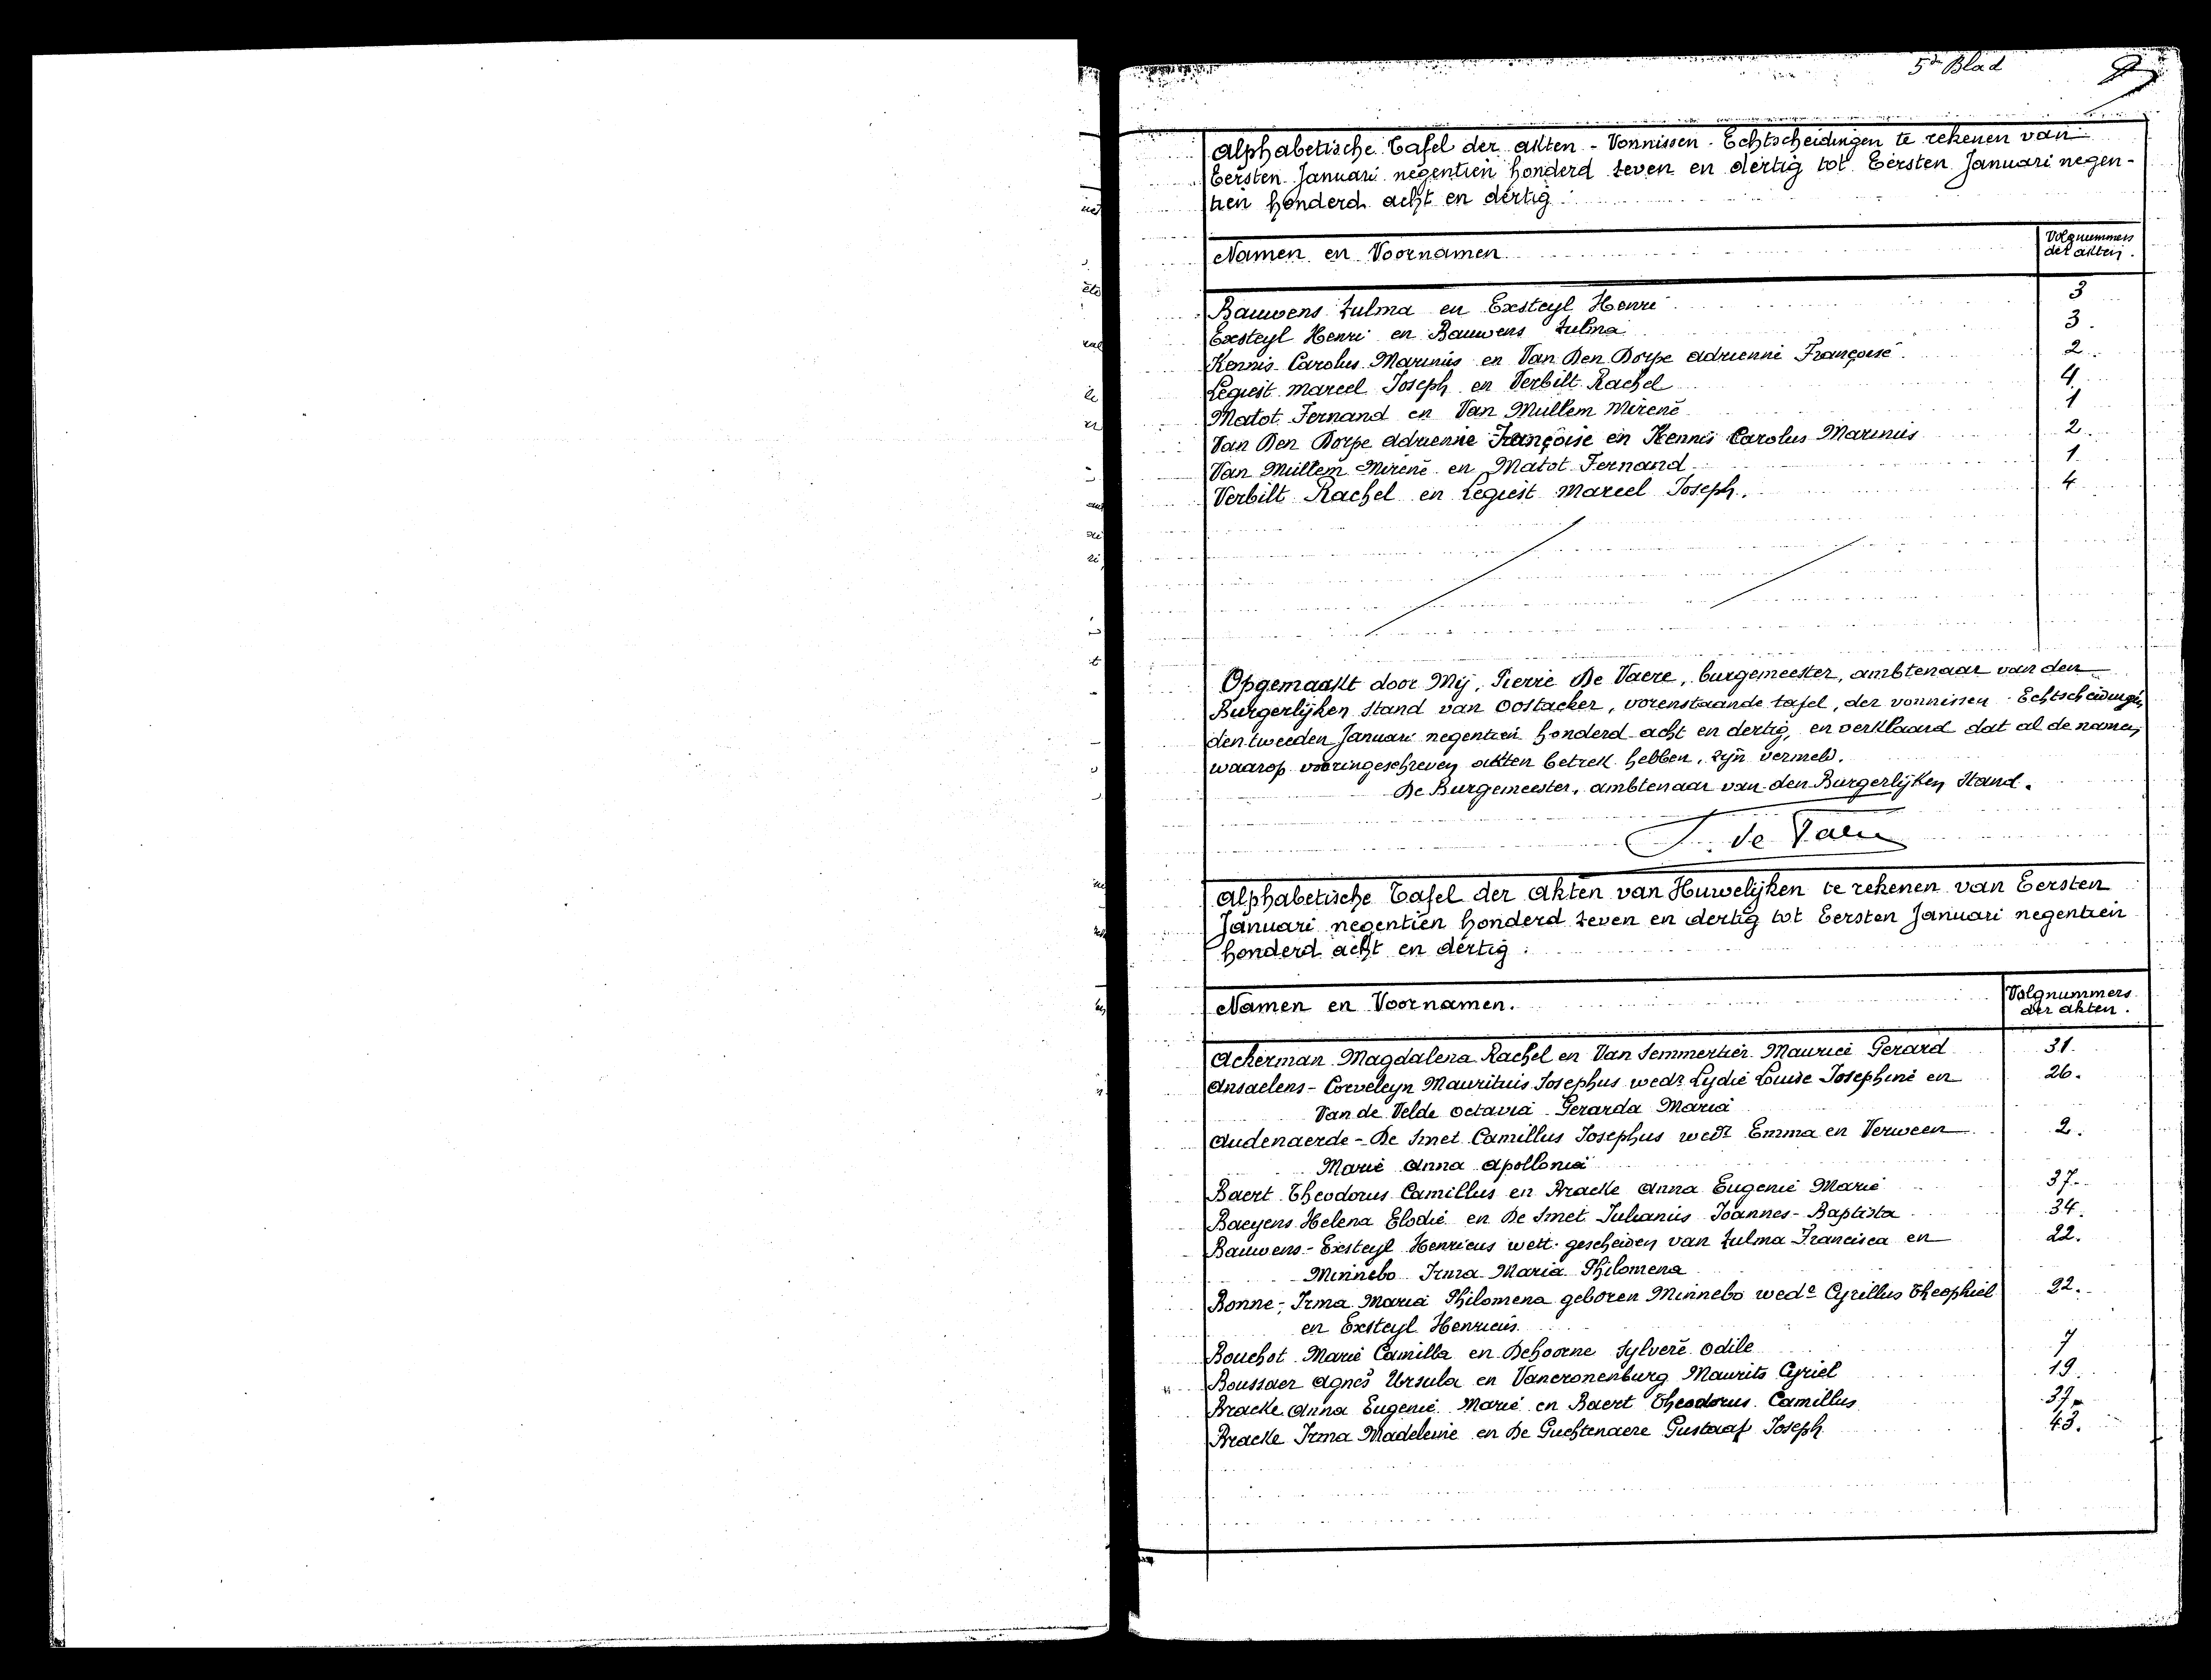 5de Blad
Alphabetische Tafel der akten - Vonnissen - Echtscheidingen te rekenen van
Eersten Januari negentien honderd zeven en dertig tot Eersten Januari negen-
tien honderd acht en dertig
Namen en Voornamen
Volgnummers
der akten.
Bauwens Zulma en Exsteyl Henri 3
Exsteyl Henri en Bauwens Zulma 3.
Kennis Carolus Marinus en Van Den Dorpe Adrienne Françoise. 2.
Legiest Marcel Joseph en Verbilt Rachel 4.
Matot Fernand en Van Mullem Mirene 1
Van Den Dorpe Adrienne Françoise en Kennis Carolus Marinus 2.
Van Mullem Mirene en Matot Fernand 1
Verbilt Rachel en Legiest Marcel Joseph. 4
Opgemaakt door Mij, Pierre De Vaere, burgemeester, ambtenaar van den
Burgerlijken Stand van Oostacker, vorenstaande tafel, der vonnissen - Echtscheidingen
den tweeden Januari negentien honderd acht en dertig, en verklaard dat al de namen
waarop vooringeschreven akten betrek hebben, zijn vermeld.
De Burgemeester, ambtenaar van den Burgerlijken Stand.
P. De Vaere
Alphabetische Tafel der Akten van Huwelijken te rekenen van Eersten
Januari negentien honderd zeven en dertig tot Eersten Januari negentien
honderd acht en dertig.
Namen en Voornamen.
Volgnummers
der akten.
Ackerman Magdalena Rachel en Van Semmertier Maurice Gerard 31.
Ansaelens - Corveleyn Mauritius Josephus wedr Lydie Louise Josephine en 26.
Van de Velde Octavia Gerarda Maria
Audenaerde - De Smet Camillus Josephus wedr Emma en Verween 2.
Marie Anna Apollonia
Baert Theodorus Camillus en Bracke Anna Eugenie Marie 37.
Baeyens Helena Elodie en De Smet Julianus Joannes-Baptista 34.
Bauwens - Exsteyl Henricus wett. gescheiden van Zulma Francisca en 22.
Minnebo Irma Maria Philomena
Bonne - Irma Maria Philomena geboren Minnebo wede Cyrillus Theophiel 22.
en Exsteyl Henricus.
Bouchot Marie Camilla en Dehoorne Sylvere Odile 7
Boussaer Agnes Ursula en Vancronenburg Maurits Cyriel 19.
Bracke Anna Eugenie Marie en Baert Theodorus Camillus 37.
Bracke Irma Madeleine en De Guchtenaere Gustaaf Joseph 43.